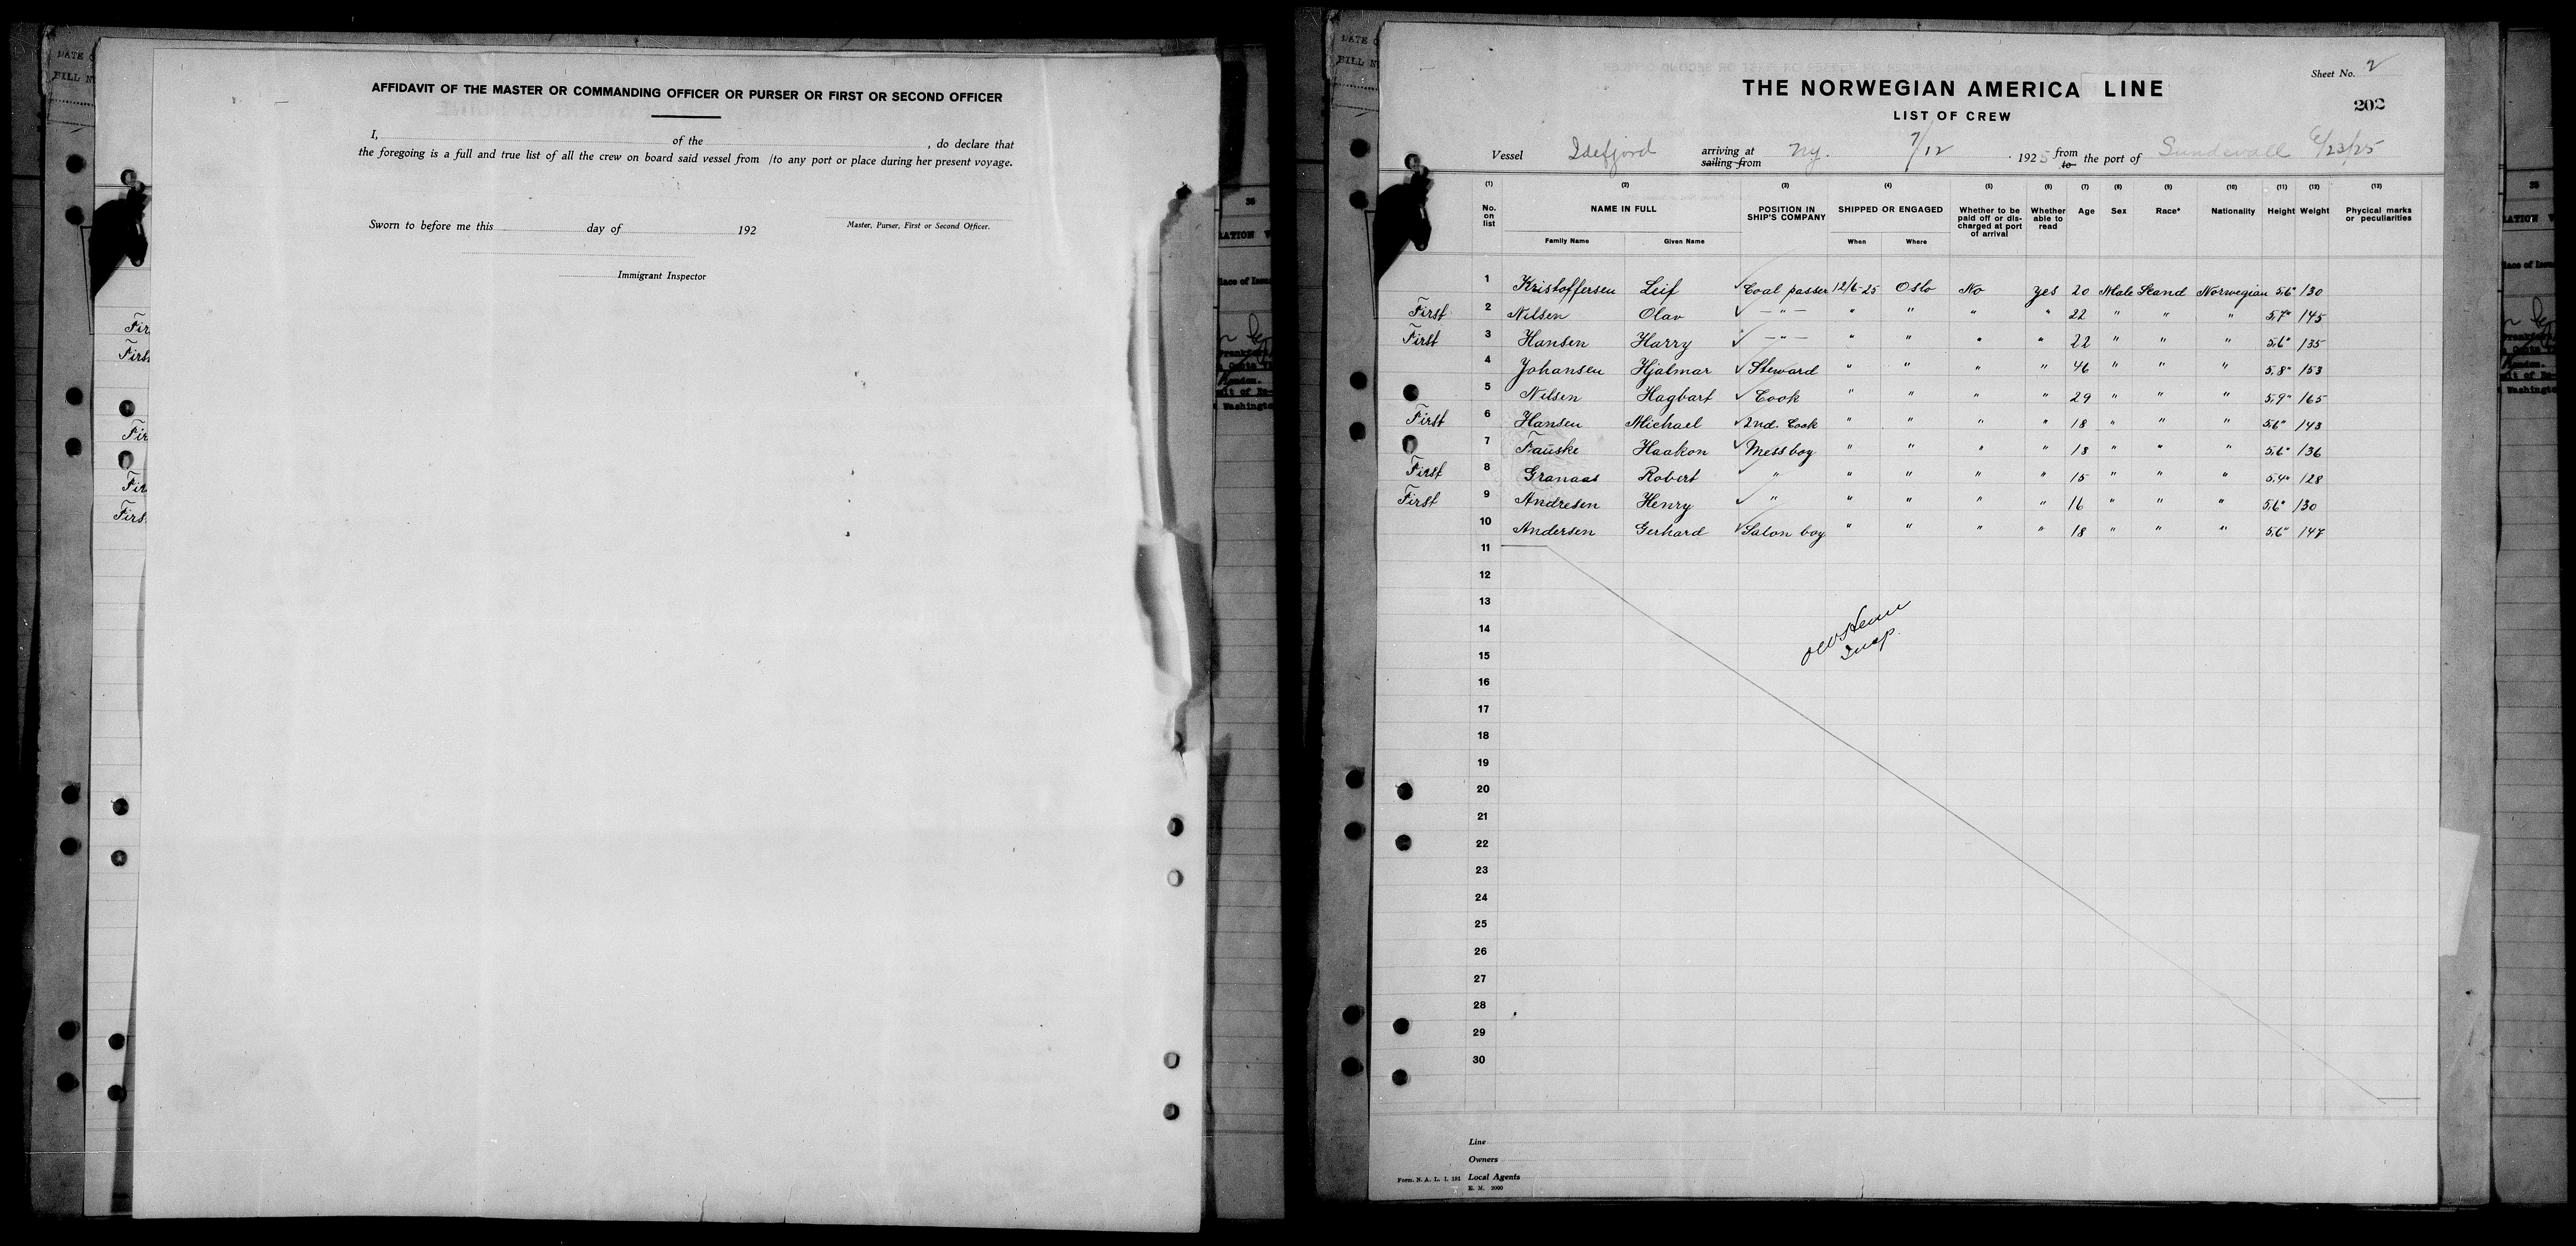 AFFIDAVIT OF THE MASTER OR COMMANDING OFFICER OR PURSER OR FIRST OR SECOND OFFICER
I, of the , do declare that
the foregoing is a full and true list of all the crew on board said vessel from /to any port or place during her present voyage.
Sworn to before me this day of 192
Master, Purser, First or Second Officer.
Immigrant Inspector
Sheet No. 2
THE NORWEGIAN AMERICA LINE
202
LIST OF CREW
Vessel Idefjord arriving at sailing from Ny. 7/12 1925 from to the port of Sundsvall 6/23/25
(1) (2) (3) (4) (5) (6) (7) (8) (9) (10) (11) (12) (13)
No. on list NAME IN FULL POSITION IN SHIP'S COMPANY SHIPPED OR ENGAGED Whether to be paid off or discharged at port of arrival Whether able to read Age Sex Race* Nationality Height Weight Phycical marks or peculiarities
Family Name Given Name When Where
1 Kristoffersen Leif Coal passer 12/6-25 Oslo No yes 20 Male Scand Norwegian 5,6" 130
First 2 Nilsen Olav — " — " " " " 22 " " " 5,7" 145
First 3 Hansen Harry — " — " " " " 22 " " " 5,6" 135
4 Johansen Hjalmar Steward " " " " 46 " " " 5,8" 153
5 Nilsen Hagbart Cook " " " " 29 " " " 5,9" 165
First 6 Hansen Michael 2nd. Cook " " " " 18 " " " 5,6" 143
7 Fauske Haakon Messboy " " " " 18 " " " 5,6" 136
First 8 Granaas Robert " " " " " 15 " " " 5,4" 128
First 9 Andresen Henry " " " " " 16 " " " 5,6" 130
10 Andersen Gerhard Salon boy " " " " 18 " " " 5,6" 147
11
12
13
14
15
16
17
18
19
20
21
22
23
24
25
26
27
28
29
30
Insp.
Line
Owners
Form. N. A. L. I. 191 Local Agents
E. M. 2000